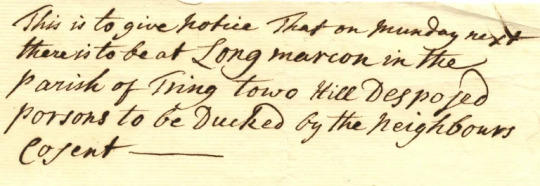 This is to give notice That on munday next
there is to be at Longmarcon in the
parish of Tring towo Hill Desposed
porsons to be Ducked by the Neighbours
Cosent